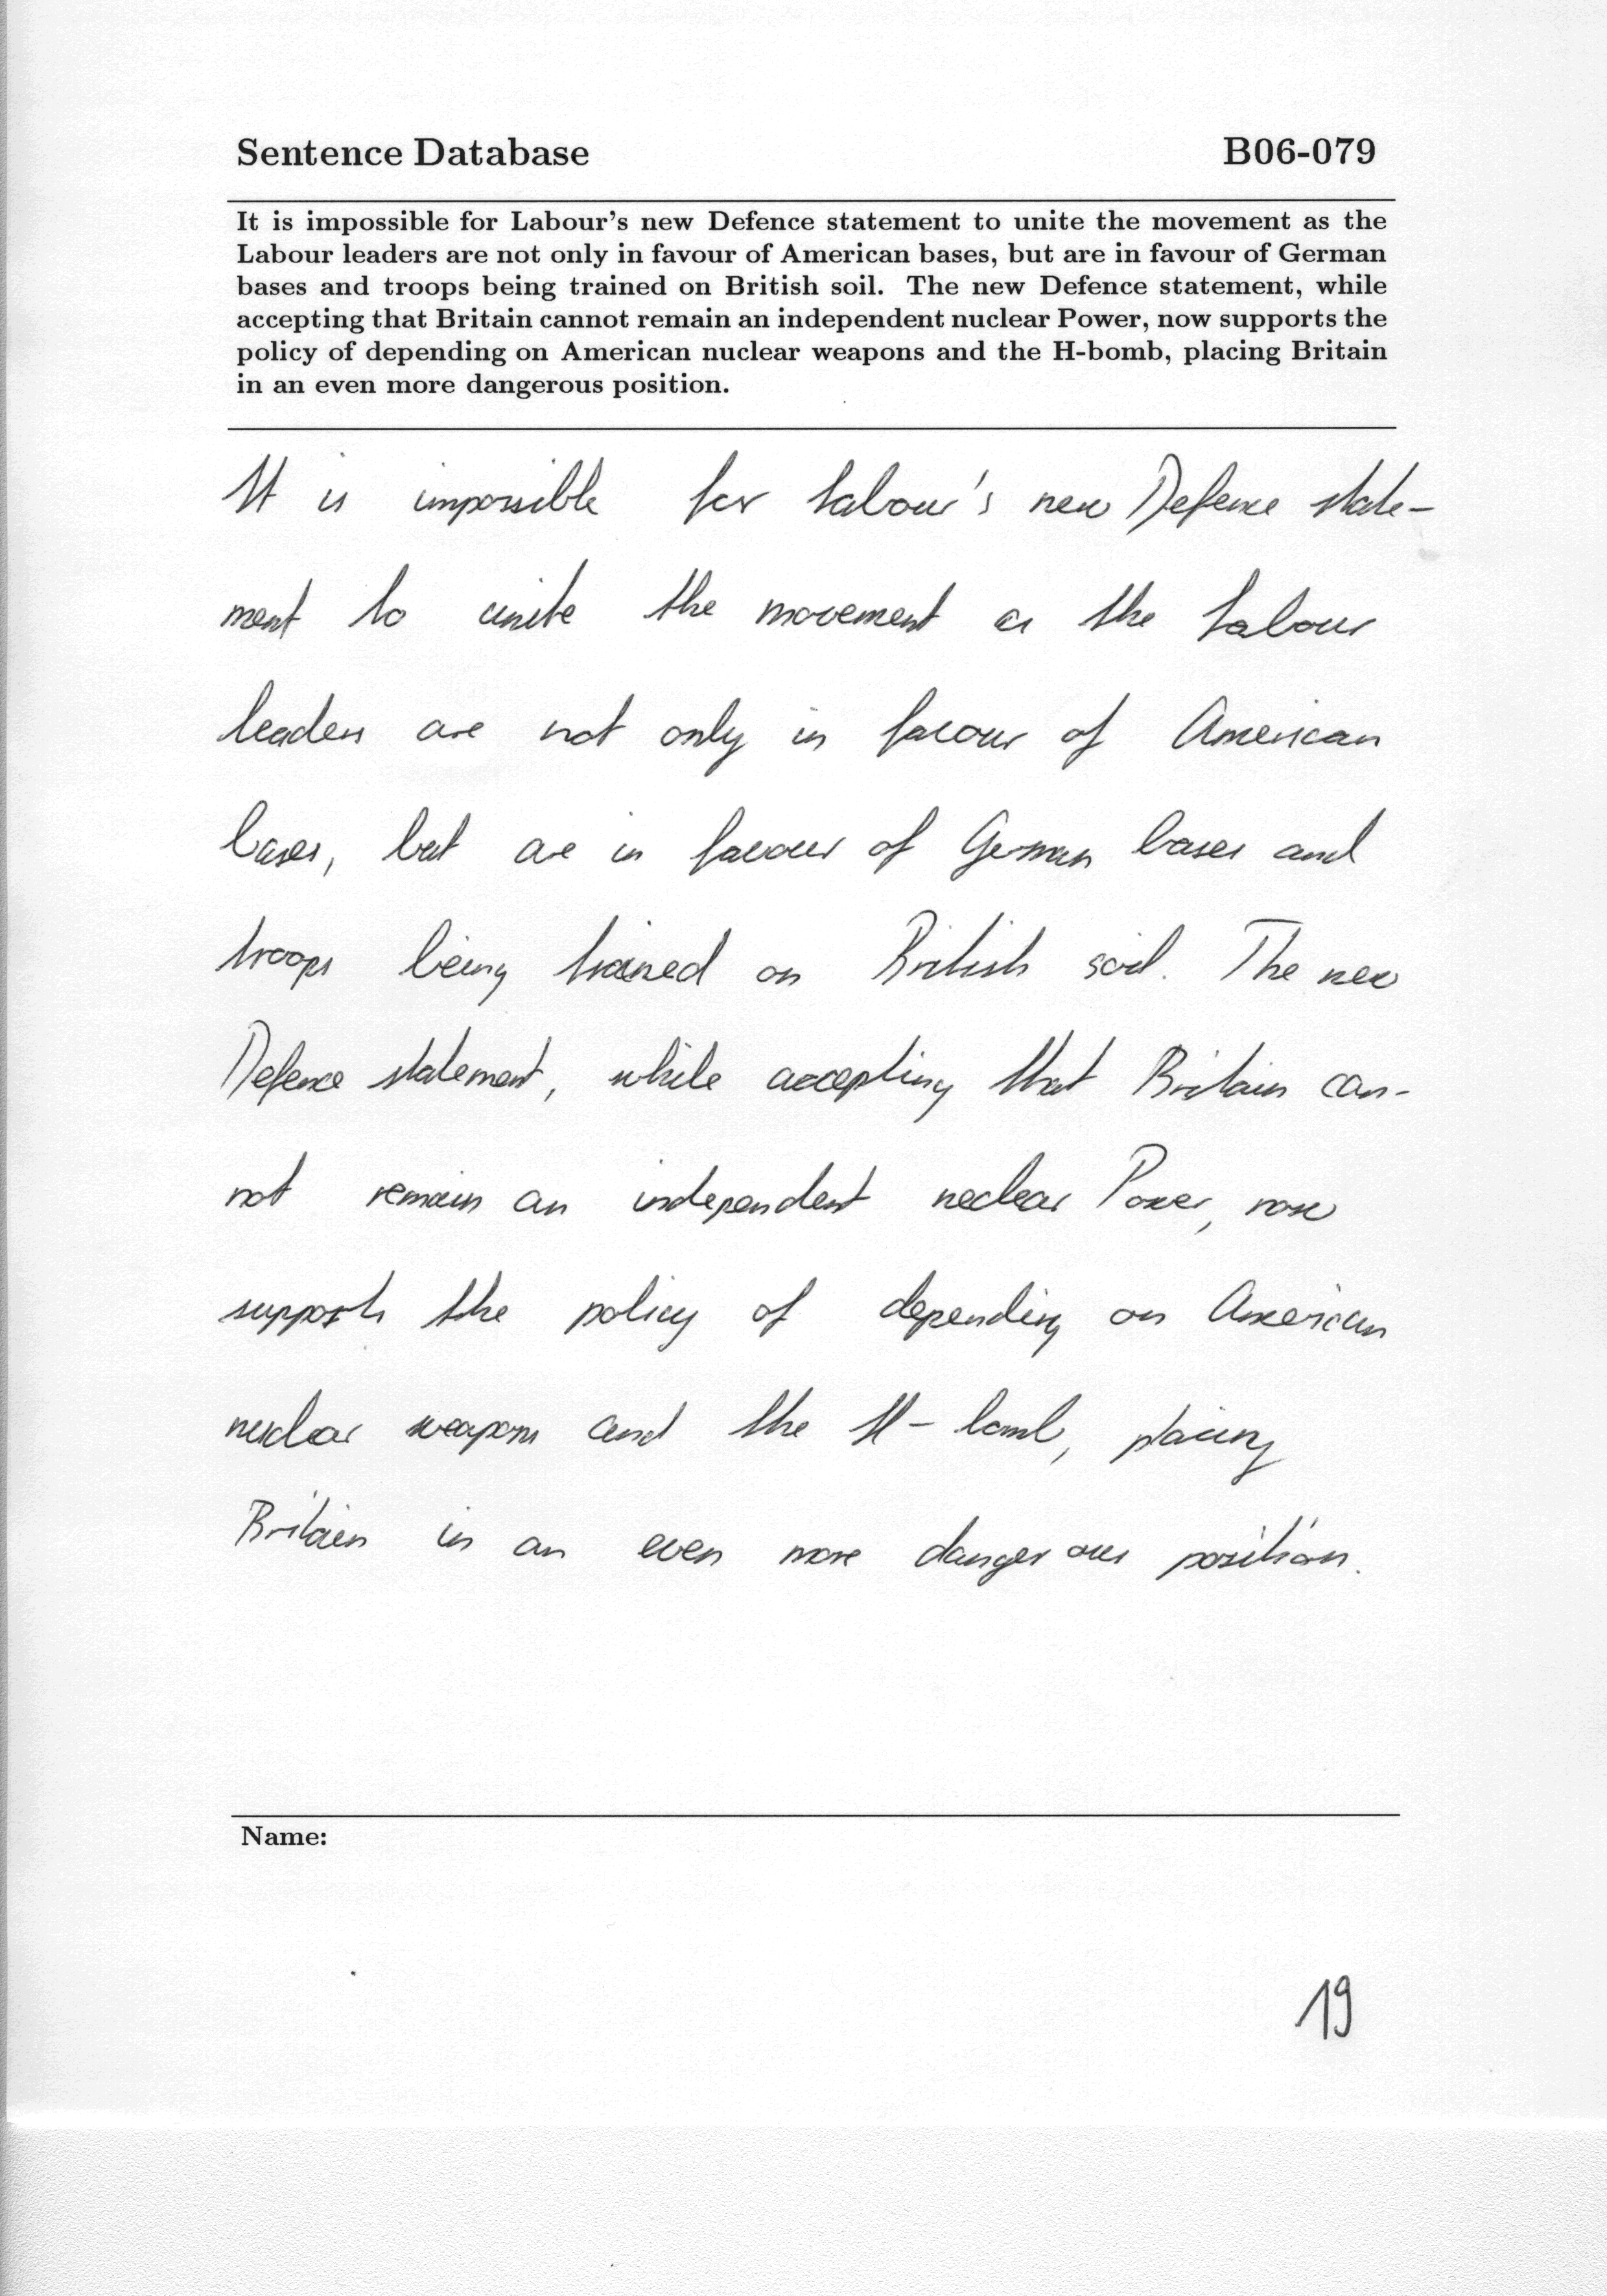 Sentence Database B06-079
It is impossible for Labour's new Defence statement to unite the movement as the
Labour leaders are not only in favour of American bases, but are in favour of German
bases and troops being trained on British soil. The new Defence statement, while
accepting that Britain cannot remain an independent nuclear Power, now supports the
policy of depending on American nuclear weapons and the H-bomb, placing Britain
in an even more dangerous position.
It is impossible for Labour's new Defence state-
ment to unite the movement as the Labour
leaders are not only in favour of American
bases, but are in favour of German bases and
troops being trained on British soil. The new
Defence statement, while accepting that Britain can-
not remain an independent nuclear Power, now
supports the policy of depending on American
nuclear weapons and the H-bomb, placing
Britain in an even more dangerous position.
Name:
19